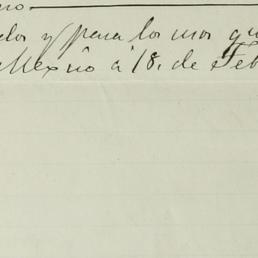 no.
dos y para los usos qu
Mexico á 18, de Feb